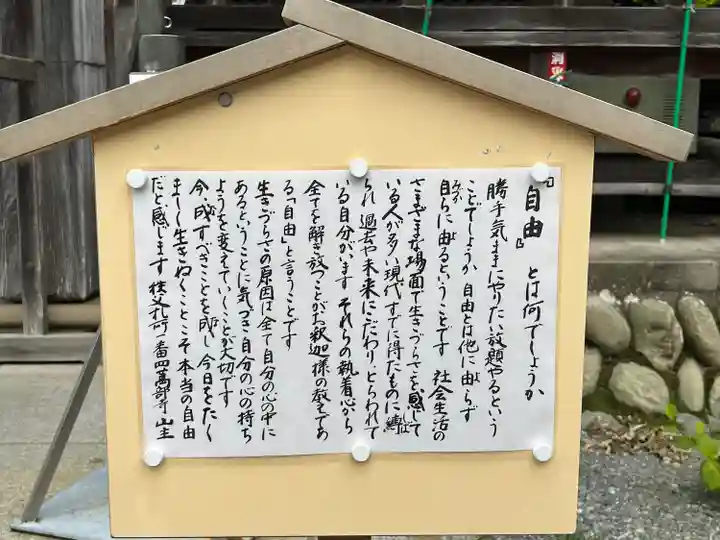 『自由』とは何でしょうか
勝手気ままにやりたい放題やるという
ことでしょうか 自由とは他に由らず
自らに由るということです 社会生活の
さまざまな場面で生きづらさを感じて
いる人が多い現代すでに得たものに縛
られ 過去や未来にこだわり、とらわれて
いる自分がいます それらの執着心から
全てを解き放つことがお釈迦様の教えであ
る「自由」と言うことです
生きづらさの原因は全て自分の心の中に
あるということに気づき 自分の心の持ち
ようを変えていくことが大切です
今、成すべきことを成し 今日をたく
ましく生きぬくことこそ本当の自由
だと感じます 秩父札所一番四萬部寺 山主